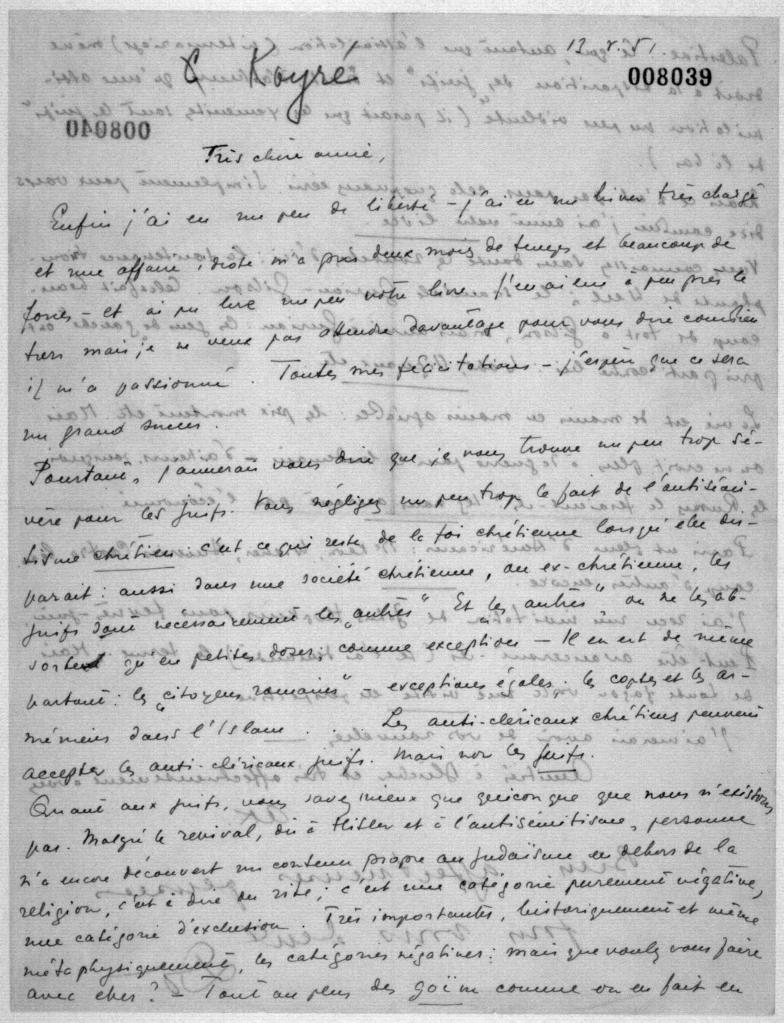 13.V.51
Koyré
008039
008040
Très chère amie,
Enfin j'ai eu un peu de liberté – j'ai eu un hiver très chargé
et une affaire idiote m'a pris deux mois de temps et beaucoup de
forces – et ai pu lire un peu votre livre. J'en ai lu à peu près le
tiers mais je ne veux pas attendre davantage pour vous dire combien
il m'a passionné. Toutes mes félicitations – j'espère que ce sera
un grand succès.
Pourtant, j'aimerais vous dire que je vous trouve un peu trop sé-
vère pour les Juifs. Vous négligez un peu trop le fait de l'antisémi-
tisme chrétien: c'est ce qui reste de la foi chrétienne lorsqu'elle dis-
parait: aussi dans une société chrétienne, ou ex-chrétienne, les
juifs sont nécessairement les "autres". Et les "autres" on ne les ab-
sorbe qu'en petites doses; comme exceptions – Il en est de même
partout: les "citoyens romains" exceptions égales: les coptes et les ar-
méniens dans l'Islam. Les anti-cléricaux chrétiens peuvent
accepter les anti-cléricaux juifs. Mais non les Juifs.
Quant aux juifs, vous savez mieux que quiconque que nous n'existons
pas. Malgré le revival, dû à Hitler et à l'antisémitisme, personne
n'a encore découvert un contenu propre au Judaïsme en dehors de la
religion, c'est à dire du rite; c'est une catégorie purement négative,
une catégorie d'exclusion. Très importantes, historiquement et même
métaphysiquement, les catégories négatives: mais que voulez vous faire
avec elles? – Tout au plus des goïm comme on en fait en